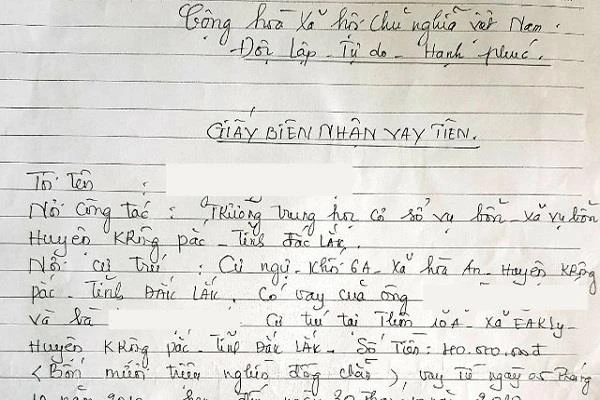 Cộng hoà Xã hội Chủ nghĩa việt Nam.
Độc lập - Tự do - Hạnh phúc.
GIẤY BIÊN NHẬN VAY TIỀN.
Tôi tên :
Nơi công tác : Trường trung học cơ sở vụ bổn - xã vụ bổn
Huyện KRông pắc - Tỉnh đắc Lắk.
Nơi cư trú : Cư ngụ - Khối 6A - Xã hòa An - Huyện KRông
pắc - Tỉnh ĐẮK LẮK. Có vay của ông
và bà Cư trú tại Thôn 10A - Xã EAKly -
Huyện KRông pắc - Tỉnh Đắk Lắk - Số Tiền: 40.000.000đ
(Bốn mươi triệu nghìn đồng chẵn), vay Từ ngày 05 Tháng